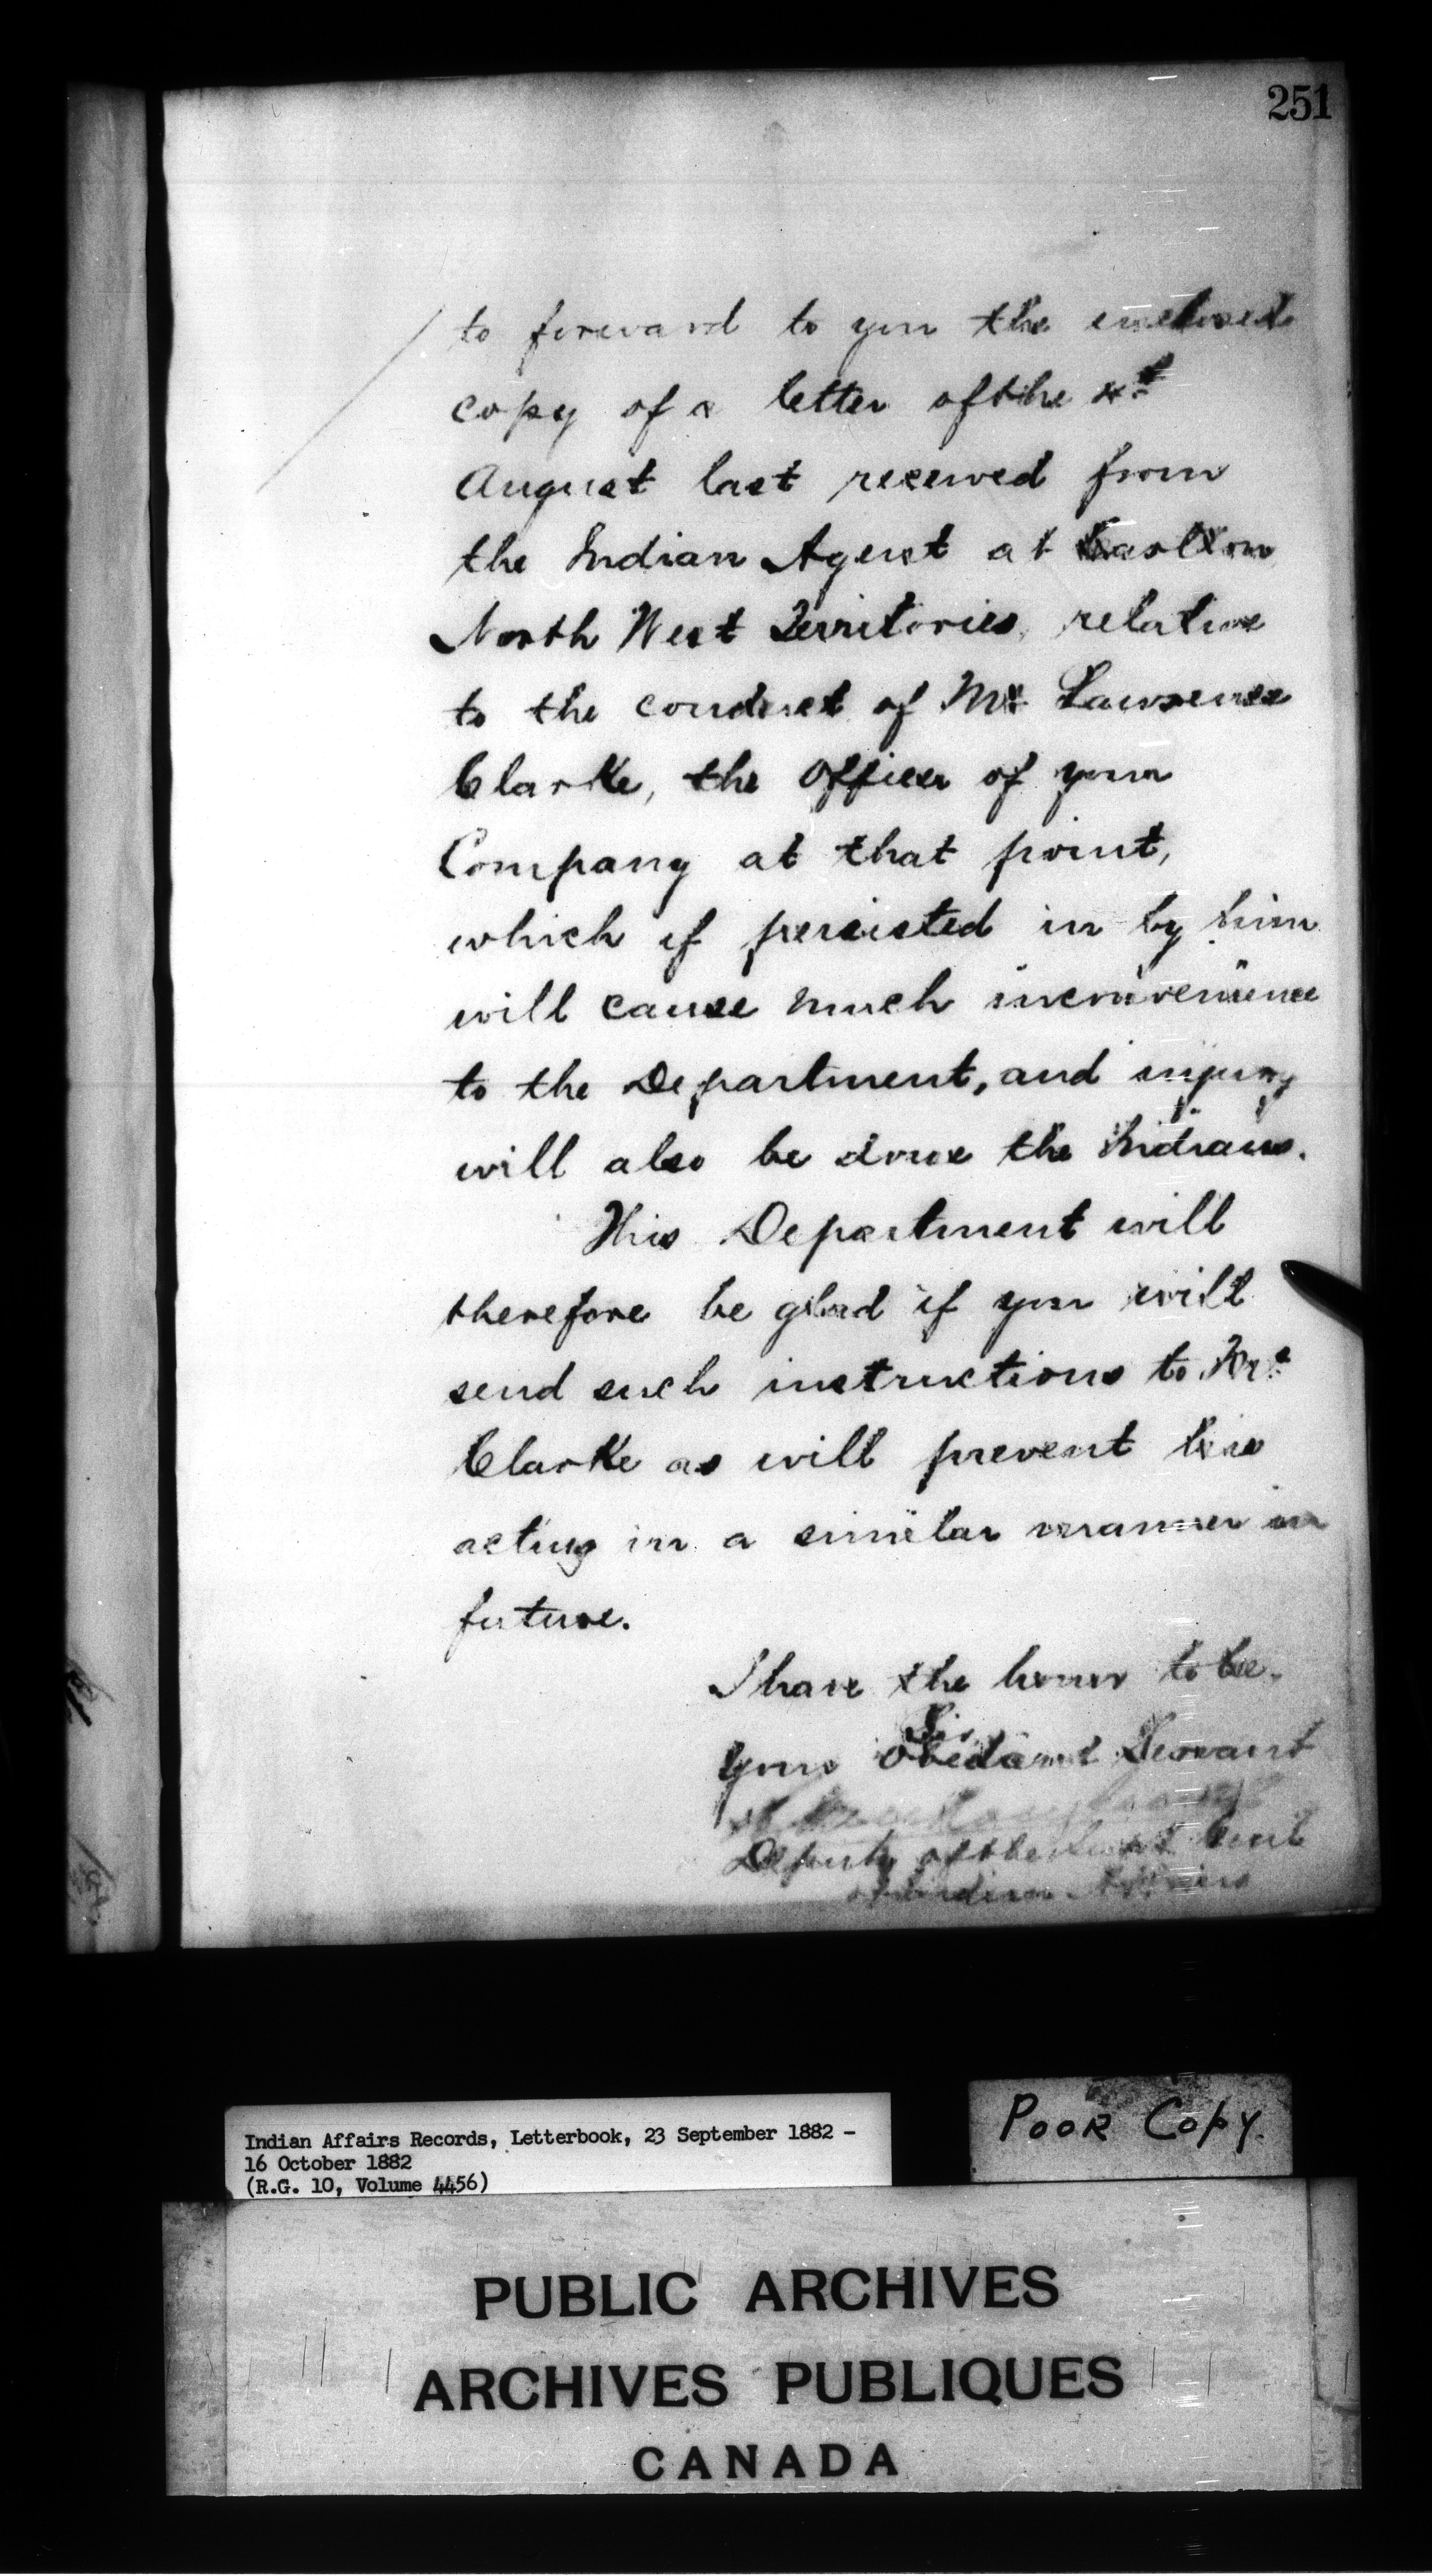 251
to forward to you the enclosed
copy of a letter of the
August last received from
the Indian Agent at Carlton
North West Territories, relative
to the conduct of Mr. Lawrence
Clarke, the Officer of your
Company at that point,
which if persisted in by him
will cause much inconvenience
to the Department, and injury
will also be done the Indians.
This Department will
therefore be glad if you will
send such instructions to Mr.
Clarke as will prevent his
acting in a similar manner in
future.
I have the honor to be.
Sir,
Your Obedient Servant
Deputy of the Supt Genl
of Indian Affairs
Indian Affairs Records, Letterbook, 23 September 1882 -
16 October 1882
(R.G. 10, Volume 4456)
POOR COPY.
PUBLIC ARCHIVES
ARCHIVES PUBLIQUES
CANADA